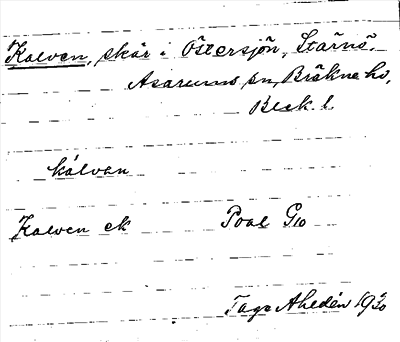 Kalven, skär i Östersjön, Stärnö,
Asarums sn, Bräkne hd,
Blek. l.
kálvan
Kalven ek Poal G10
Tage Ahldén 1930